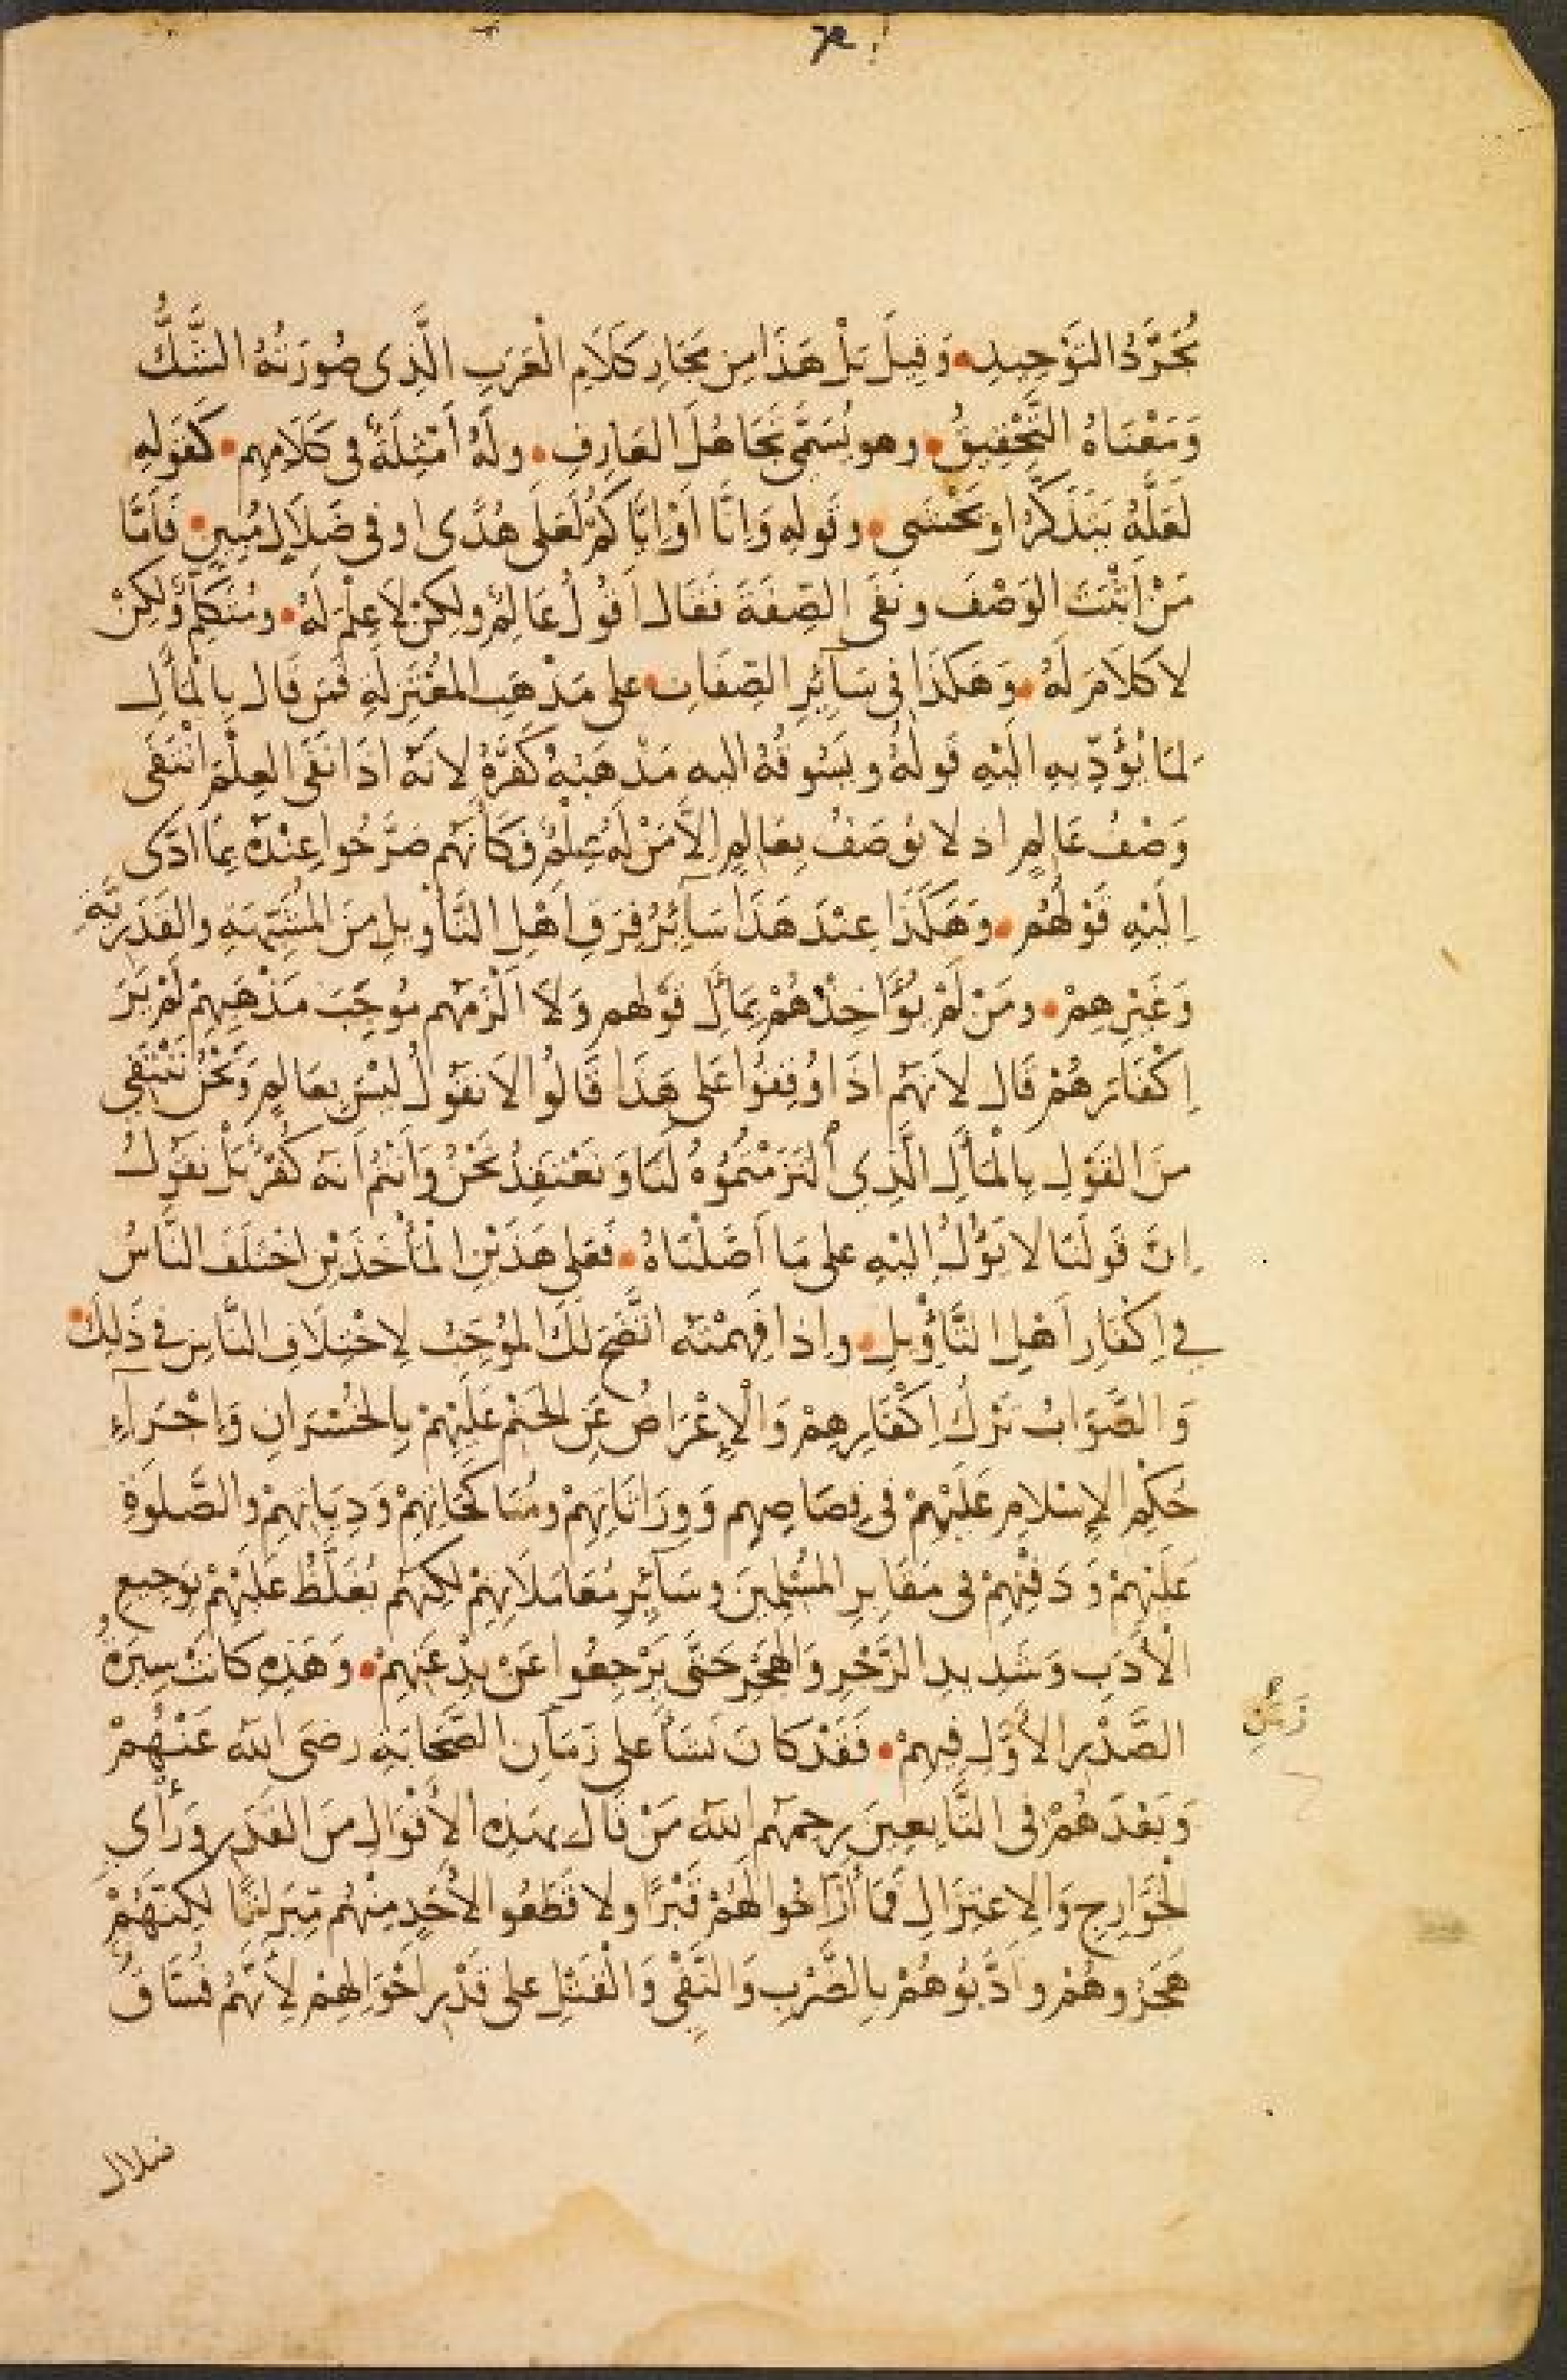 مُجَرَّدُ التَّوْحِيدِ • وَقِيلَ بَلْ هَذَا مِن مَجَازِ كَلَامِ الْعَرَبِ الَّذِى صُورَتُهُ الشَّكُّ
وَمَعْنَاهُ التَّحْقِيقُ • وهو يُسَمَّى تَجَاهُلَ العَارِفِ • ولَهُ أَمْثِلَةٌ فى كَلَامِهِم • كَقَوْلِهِ
لَعَلَّهُ يَتَذَكَّرُ او يَخْشَى • وقَولِهِ وَاِنَّا اَوْ اِيَّاكُمْ لَعَلَى هُدًى او فى ضَلَالٍ مُبِينٍ • فَاَمَّا
مَنْ اَثْبَتَ الوَصْفَ ونَفَى الصِّفَةَ فَقَال اَقُولُ عَالِمٌ ولكِنْ لا عِلْمَ لَهُ • ومُتَكَلِّمٌ ولكِنْ
لا كَلَامَ لَهُ • وَهَكَذَا فى سَآئِرِ الصِّفَاتِ • على مَذْهَبِ المُعْتَزِلَةِ فَمَن قَال بِالْمَآلِ
لِمَا يُؤَدِّيهِ الَيْهِ قَولُهُ ويَسُوقُهُ اليه مَذْهَبُهُ كَفَّرَهُ لانَّه اذَا نَفَى العِلْمَ انْتَفَى
وَصْفُ عَالِمٍ اذ لا يُوصَفُ بِعَالِمٍ الَّا مَنْ لَهُ عِلْمٌ فَكَأَنَّهُم صَرَّحُوا عِنْدَهُ بِمَا ادَّى
اِلَيْهِ قَوْلُهُم • وَهَكَذَا عِنْدَ هَذَا سَآئِرُ فِرَقِ اَهْلِ التَّأْوِيلِ مِنَ المُشَبِّهَةِ والقَدَرِيَّةِ
وَغَيْرِهِمْ • ومَنْ لَمْ يُؤَاخِذْهُمْ بِمَآلِ قَوْلِهِم وَلَا اَلْزَمَهُم مُوجَبَ مَذْهَبِهِمْ لَمْ يَرَ
اِكْفَارَهُمْ قَال لاَنَّهُم اذَا وُقِفُوا عَلى هَذَا قَالُوا لا نَقُولُ لَيْسَ بِعَالِمٍ وَنَحْنُ نَنْتَفِى
مِنَ القَوْلِ بِالْمَآلِ الَّذِى الْتَزَمْتُمُوهُ لَنَا وَنَعْتَقِدُ نَحْنُ وَاَنْتُم اَنَّه كُفْرٌ بَلْ نَقُولُ
اِنَّ قَولَنَا لا يَؤُلُ اِلَيْهِ على مَا اَصَّلْنَاهُ • فَعَلى هَذَيْنِ الْمَأْخَذَيْنِ اخْتَلَفَ النَّاسُ
فى اِكْفَارِ اَهْلِ التَّأْوِيلِ • واِذَا فَهِمْتَه اتَّضَحَ لَكَ المُوْجِبُ لاِخْتِلَافِ النَّاسِ فى ذَلِكَ •
وَالصَّوَابُ تَرْكُ اِكْفَارِهِمْ وَالْاِعْرَاضُ عَنِ الحَتْمِ عَلَيْهِمْ بِالخُسْرَانِ وَاِجْرَآءِ
حُكْمِ الاِسْلامِ عَلَيْهِمْ فى قِصَاصِهِم وَوِرَاثَاتِهِمْ ومُنَاكَحَاتِهِمْ وَدِيَاتِهِمْ والصَّلوةِ
عَلَيْهِمْ وَدَفْنِهِمْ فى مَقَابِرِ المُسْلِمِينَ وسَآئِرِ مُعَامَلَاتِهِمْ لكِنَّهُم يُغَلَّظُ عَلَيْهِمْ بِوَجِيعِ
الْأَدَبِ وَشَدِيدِ الزَّجْرِ وَالهَجْرِ حَتَّى يَرْجِعُوا عَنْ بِدْعَتِهِمْ • وَهَذِهِ كَانَتْ سِيرَةُ
الصَّدْرِ الأَوَّلِ فِيهِمْ • فَقَدْ كَانَ نَشَأَ على زَمَانِ الصَّحَابَةِ رضى الله عَنْهُمْ
زَمَنِ
وَبَعْدَهُمْ فى التَّابِعِينَ رحمهُم الله مَنْ قَال بهَذِهِ الأَقْوَالِ مِنَ القَدَرِ وَرَأْىِ
الخَوَارِجِ وَالاِعتِزَالِ فَمَا أَزَاحُوا لَهُمْ قَبْرًا ولا قَطَعُوا لاَحَدٍ مِنْهُم مِيرَاثًا لكِنَّهُمْ
هَجَرُوهُمْ واَدَّبُوهُمْ بِالضَّرْبِ وَالنَّفْىِ وَالْقَتْلِ على قَدْرِ اَحْوَالِهِمْ لِأَنَّهُمْ فُسَّاقٌ
ضلال